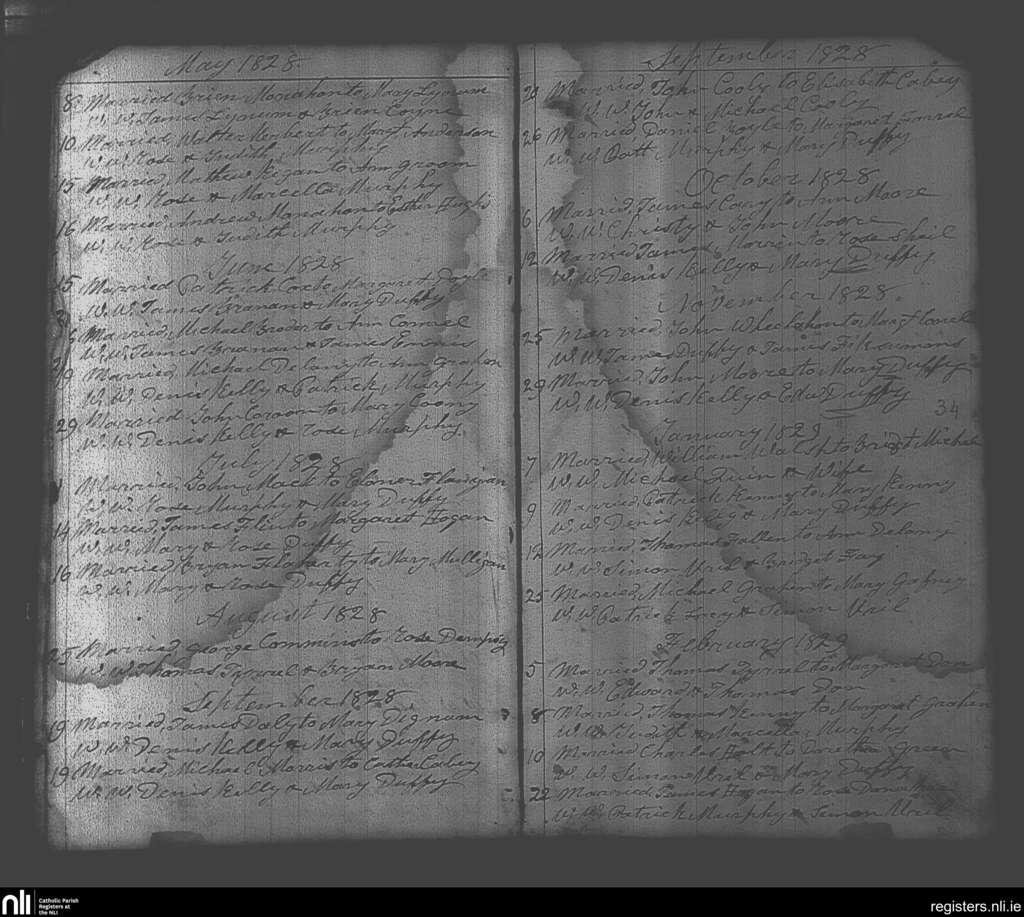 May 1828
8 Married Brien Monahon to Mary Lynum
W.W. James Lynum & Brien Coyne
10 Married Walter Herbert to Margt Anderson
W.W. Rose & Judith Murphy
15 Married, Mathew Kegan to Ann groom
W.W. Rose & Marcella Murphy
16 Married Andrew Monahon to Esther Hughs
W.W. Rose & Judith Murphy
June 1828
15 Married Patrick to Margaret
W.W. James Branan & Mary Duffy
Married, Michael Broder to Ann Cornel
W.W. James Brenan & James
Married, Michael Delamy to Ann Graham
W.W. Denis Kelly & Patrick Murphy
29 Married John Croom to Mary Coony
W.W. Denis Kelly & Rose Murphy
July 1828
1 Married, John Mack to Elenor Flanigan
W.W. Rose Murphy & Mary Duffy
14 Married, James Flin to Margaret Hogan
W.W. Mary & Rose Duffy
16 Married Bryan Flaharty to Mary Mulligan
W.W. Mary & Rose Duffy
August 1828
25 Married, George Commins to Rose Dempsy
W.W. Thomas Tyrrel & Bryan Moore
September 1828
19 Married, James Daly to Mary Dignum
W.W. Denis Kelly & Mary Duffy
19 Married, Michael Morris to Cathr Cabey
W.W. Denis Kelly & Mary Duffy
September 1828
Married, John Cooly to Elisabeth Cabey
W.W. John & Michael Cooly
26 Married Daniel Boyle to Margaret
W.W. Patt Murphy & Mary Duffy
October 1828
6 Married, James Cary to Ann Moore
W.W. Christy & John Moore
12 Married James Morrin to Rose Sheil
W.W. Denis Kelly & Mary Duffy
November 1828
25 Married, John Whelahon to Margt
W.W. James Duffy & James Fitzsimons
29 Married, John Moore to Mary Duffy
W.W. Denis Kelly & Edwd Duffy
34
January 1829
7 Married, William Walsh to Bridgt
W.W. Michael Quin & Wife
9 Married, Patrick Kenny to Mary Kenny
W.W. Denis Kelly & Mary Duffy
12 Married, Thomas Fallen to Ann Delamy
W.W. Simon Uril & Bridget Fay
25 Married, Michael Graham to Mary Gafney
W.W. Patrick & Simon Uril
February 1829
5 Married, Thomas Tyrrel to Margaret Don
W.W. Edward & Thomas Don
8 Married, Thomas Kenny to Margaret Graham
W.W. Judith & Marcella Murphy
10 Married Charles Holt to Dorethea Green
W.W. Simon Uril & Mary Duffy
22 Married, James Hogan to Rose
W.W. Patrick Murphy & Simon Uril
nli
Catholic Parish
Registers at
the NLI
registers.nli.ie